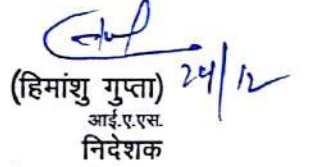 (हिमांशु गुप्ता) 24/12
आई.ए.एस.
निदेशक